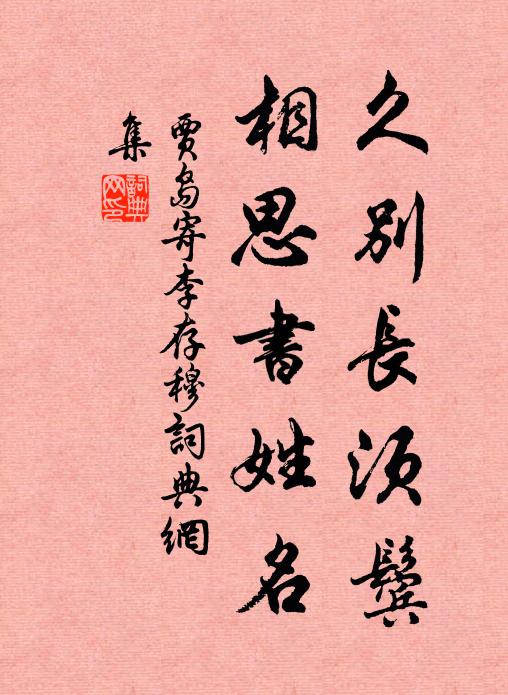 久別長須鬢
相思書姓名
賈島寄李存穆詞典網
集
詞典
网印